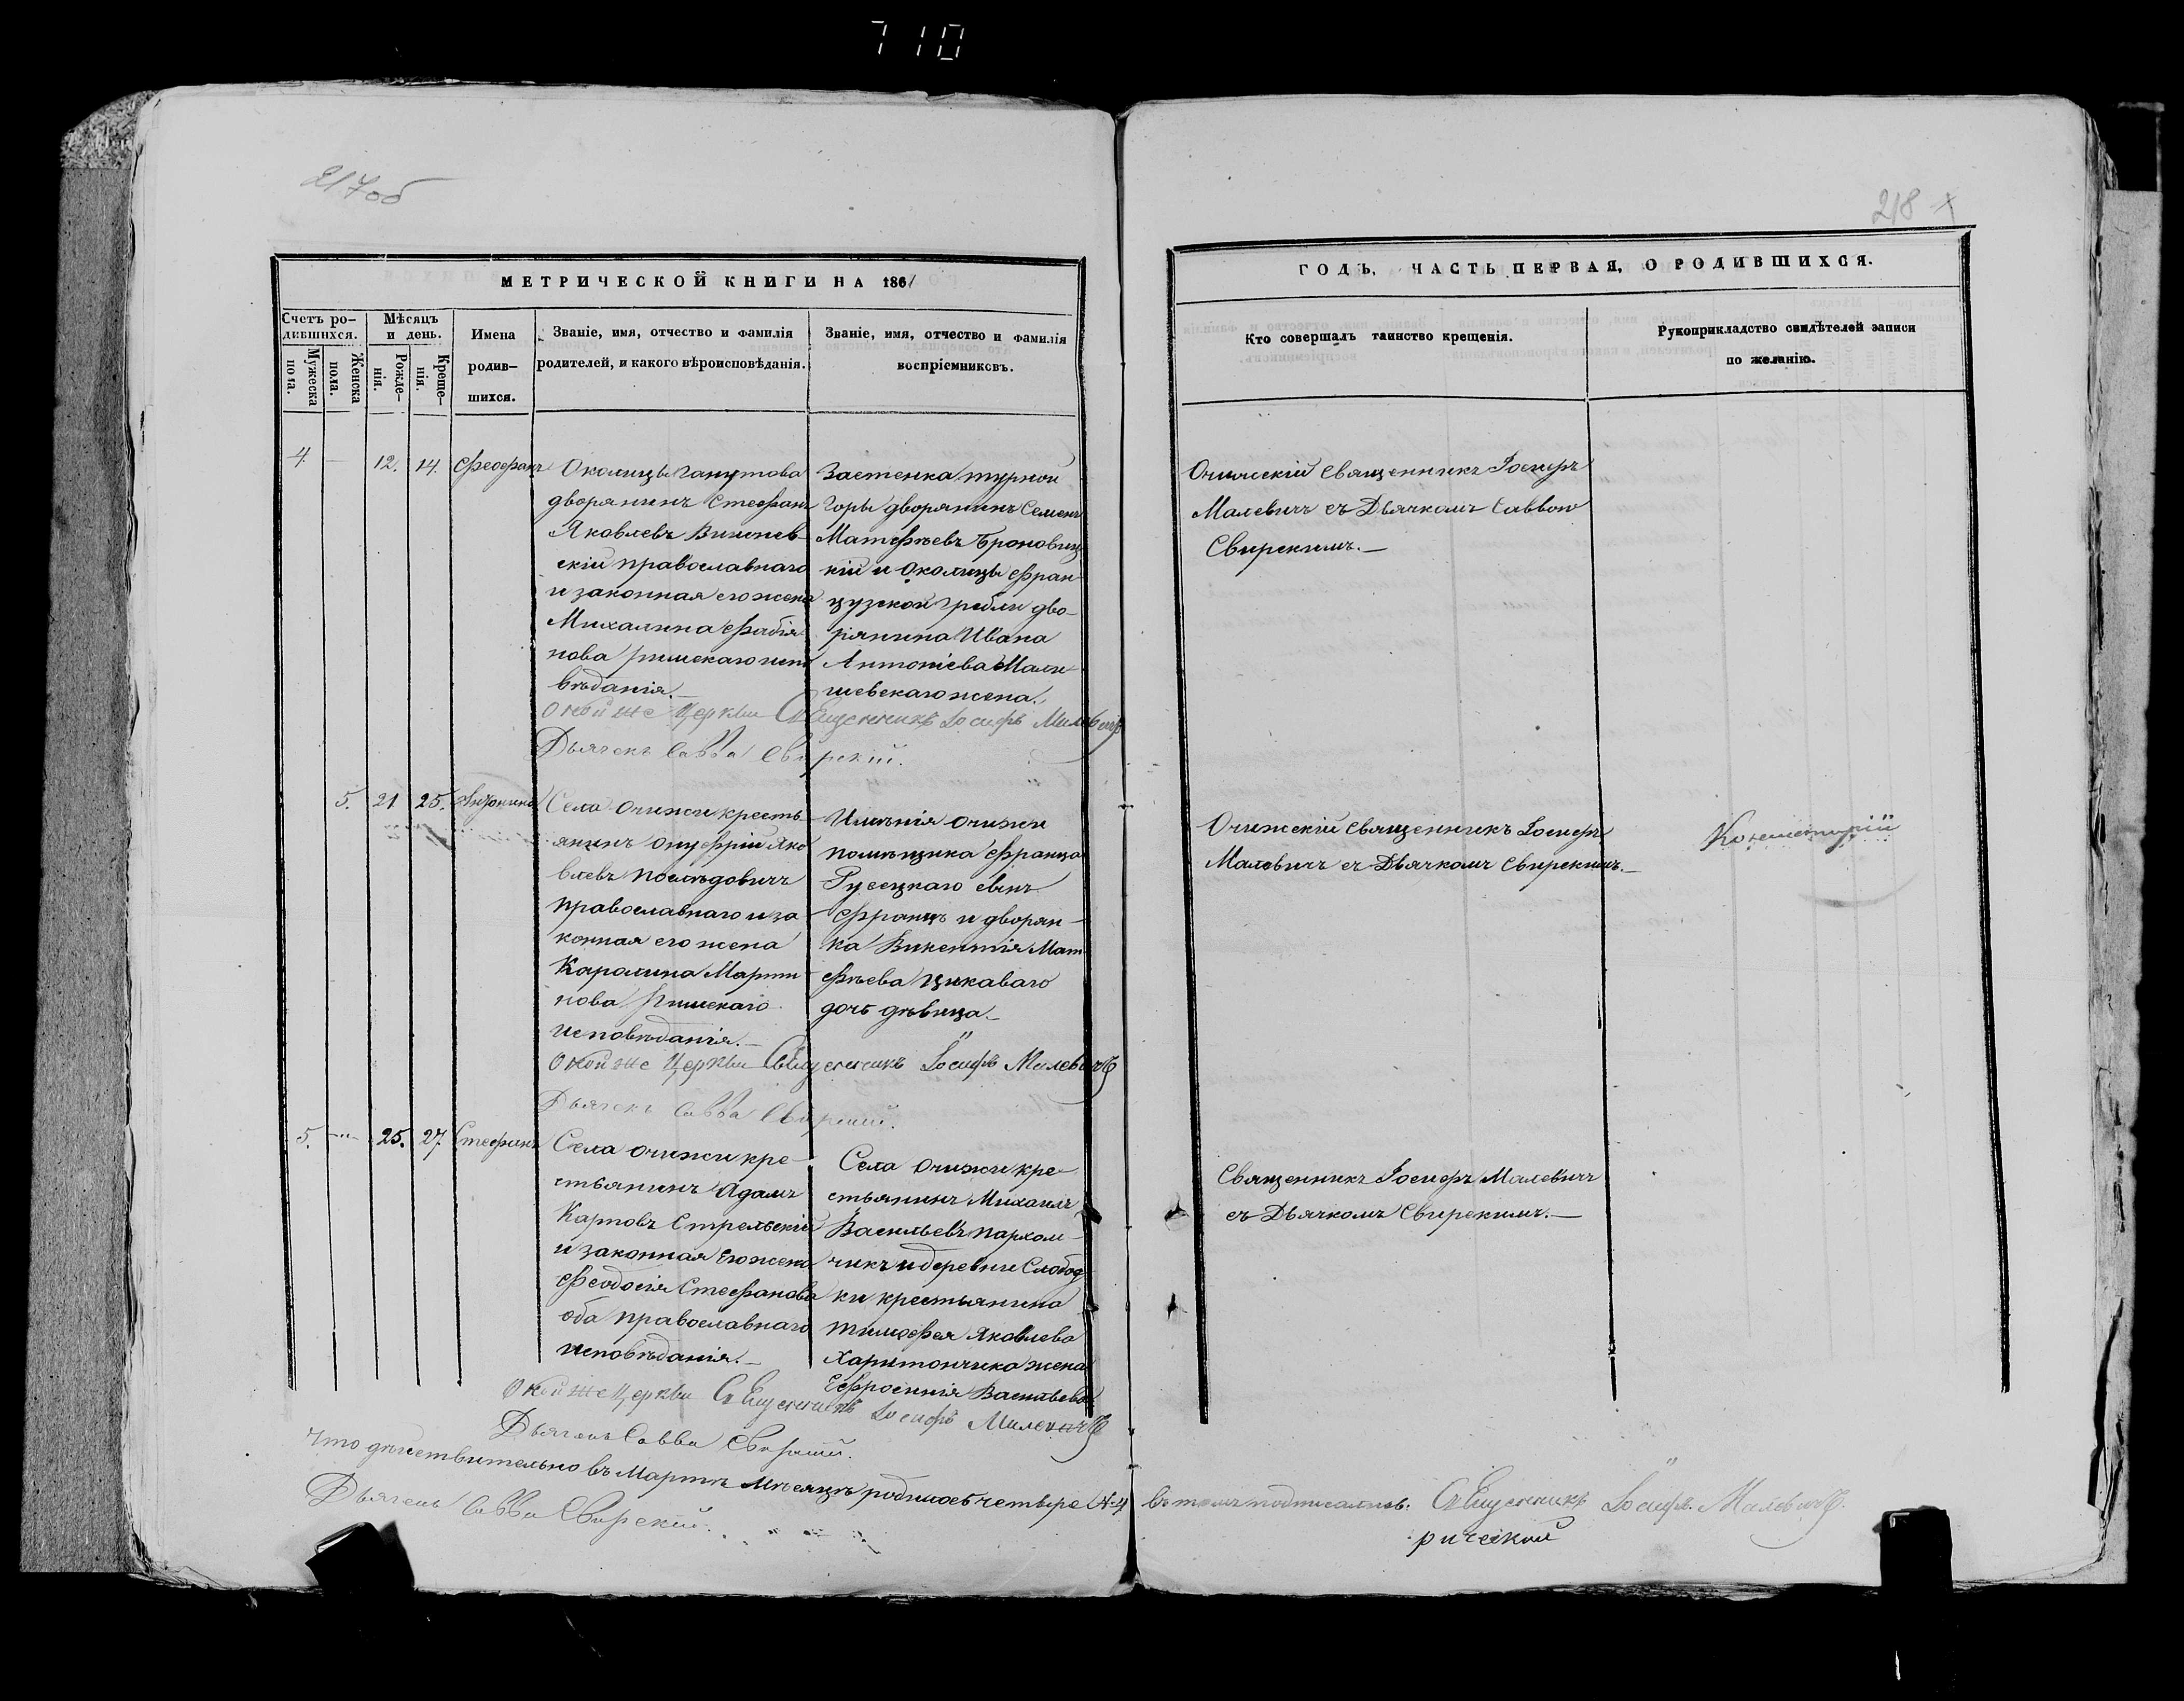 710
217об
218
МЕТРИЧЕСКОЙ КНИГИ НА 1861
ГОДЪ, ЧАСТЬ ПЕРВАЯ, О РОДИВШИХСЯ.
Счетъ ро-
дившихся.
Мужеска
пола.
Женска
пола.
Мѣсяцъ
и день.
Рожде-
нія.
Креще-
нія.
Имена
родив-
шихся.
Званіе, имя, отчество и фамилія
родителей, и какого вѣроисповѣданія.
Званіе, имя, отчество и фамилія
воспріемниковъ.
Кто совершалъ таинство крещенія.
Рукоприкладство свидѣтелей записи
по желанію.
4. — 12. 14. Феофанъ
Околицы
дворянинъ Стефанъ
Яковлевъ
скій православнаго
и законная его жена
Михалина Фабія-
нова римскаго испо
вѣданія.—
Застенка турной
Горы дворянинъ Семенъ
Матфѣевъ Броновиц
кій и околицы Фран
цузской гребли дво-
рянина Ивана
Антоніева
жена.
Очижскій Священникъ Іосифъ
Малевичъ съ Дьячкомъ Саввою
Свирскимъ.—
Оной же Церкви Священникъ Іосифъ Малевичъ
Дьячекъ Савва Свирскій.
5. 21 25. Антонина
Села Очижи кресть-
янинъ Онуфрій Яко
влевъ
православнаго и за
конная его жена
Каралина Марти
нова Римскаго
исповѣданія.—
Имѣнія Очижи
помѣщика Франца
Русецкаго сынъ
Францъ и дворян-
ка Викентія Мат
фѣева Цикаваго
дочь дѣвица.—
Очижскій Священникъ Іосифъ
Малевичъ съ Дьячкомъ Свирскимъ.—
Оной же Церкви Священникъ Іосифъ Малевичъ
Дьячекъ Савва Свирскій.
5. —"— 25. 27. Стефанъ
Села Очижи кре-
стьянинъ Адамъ
Карповъ Стрельскій
и законная его жена
Феодосія Стефанова
оба православнаго
исповѣданія.—
Села Очижи кре-
стьянинъ Михаилъ
Васильевъ Пархом-
чикъ и деревни Слобод
ки крестьянина
Тимофея Яковлева
Харитончика жена
Ефросинія Васильева
Священникъ Іосифъ Малевичъ
съ Дьячкомъ Свирскимъ.—
Оной же Церкви Священникъ Іосифъ Малевичъ
Дьячекъ Савва Свирскій.
Что дѣйствительно въ Мартѣ мѣсяцѣ родилось четверо №4 въ томъ подписались: Священникъ Іосифъ Малевичъ.
Дьячекъ Савва Свирскій.
рической